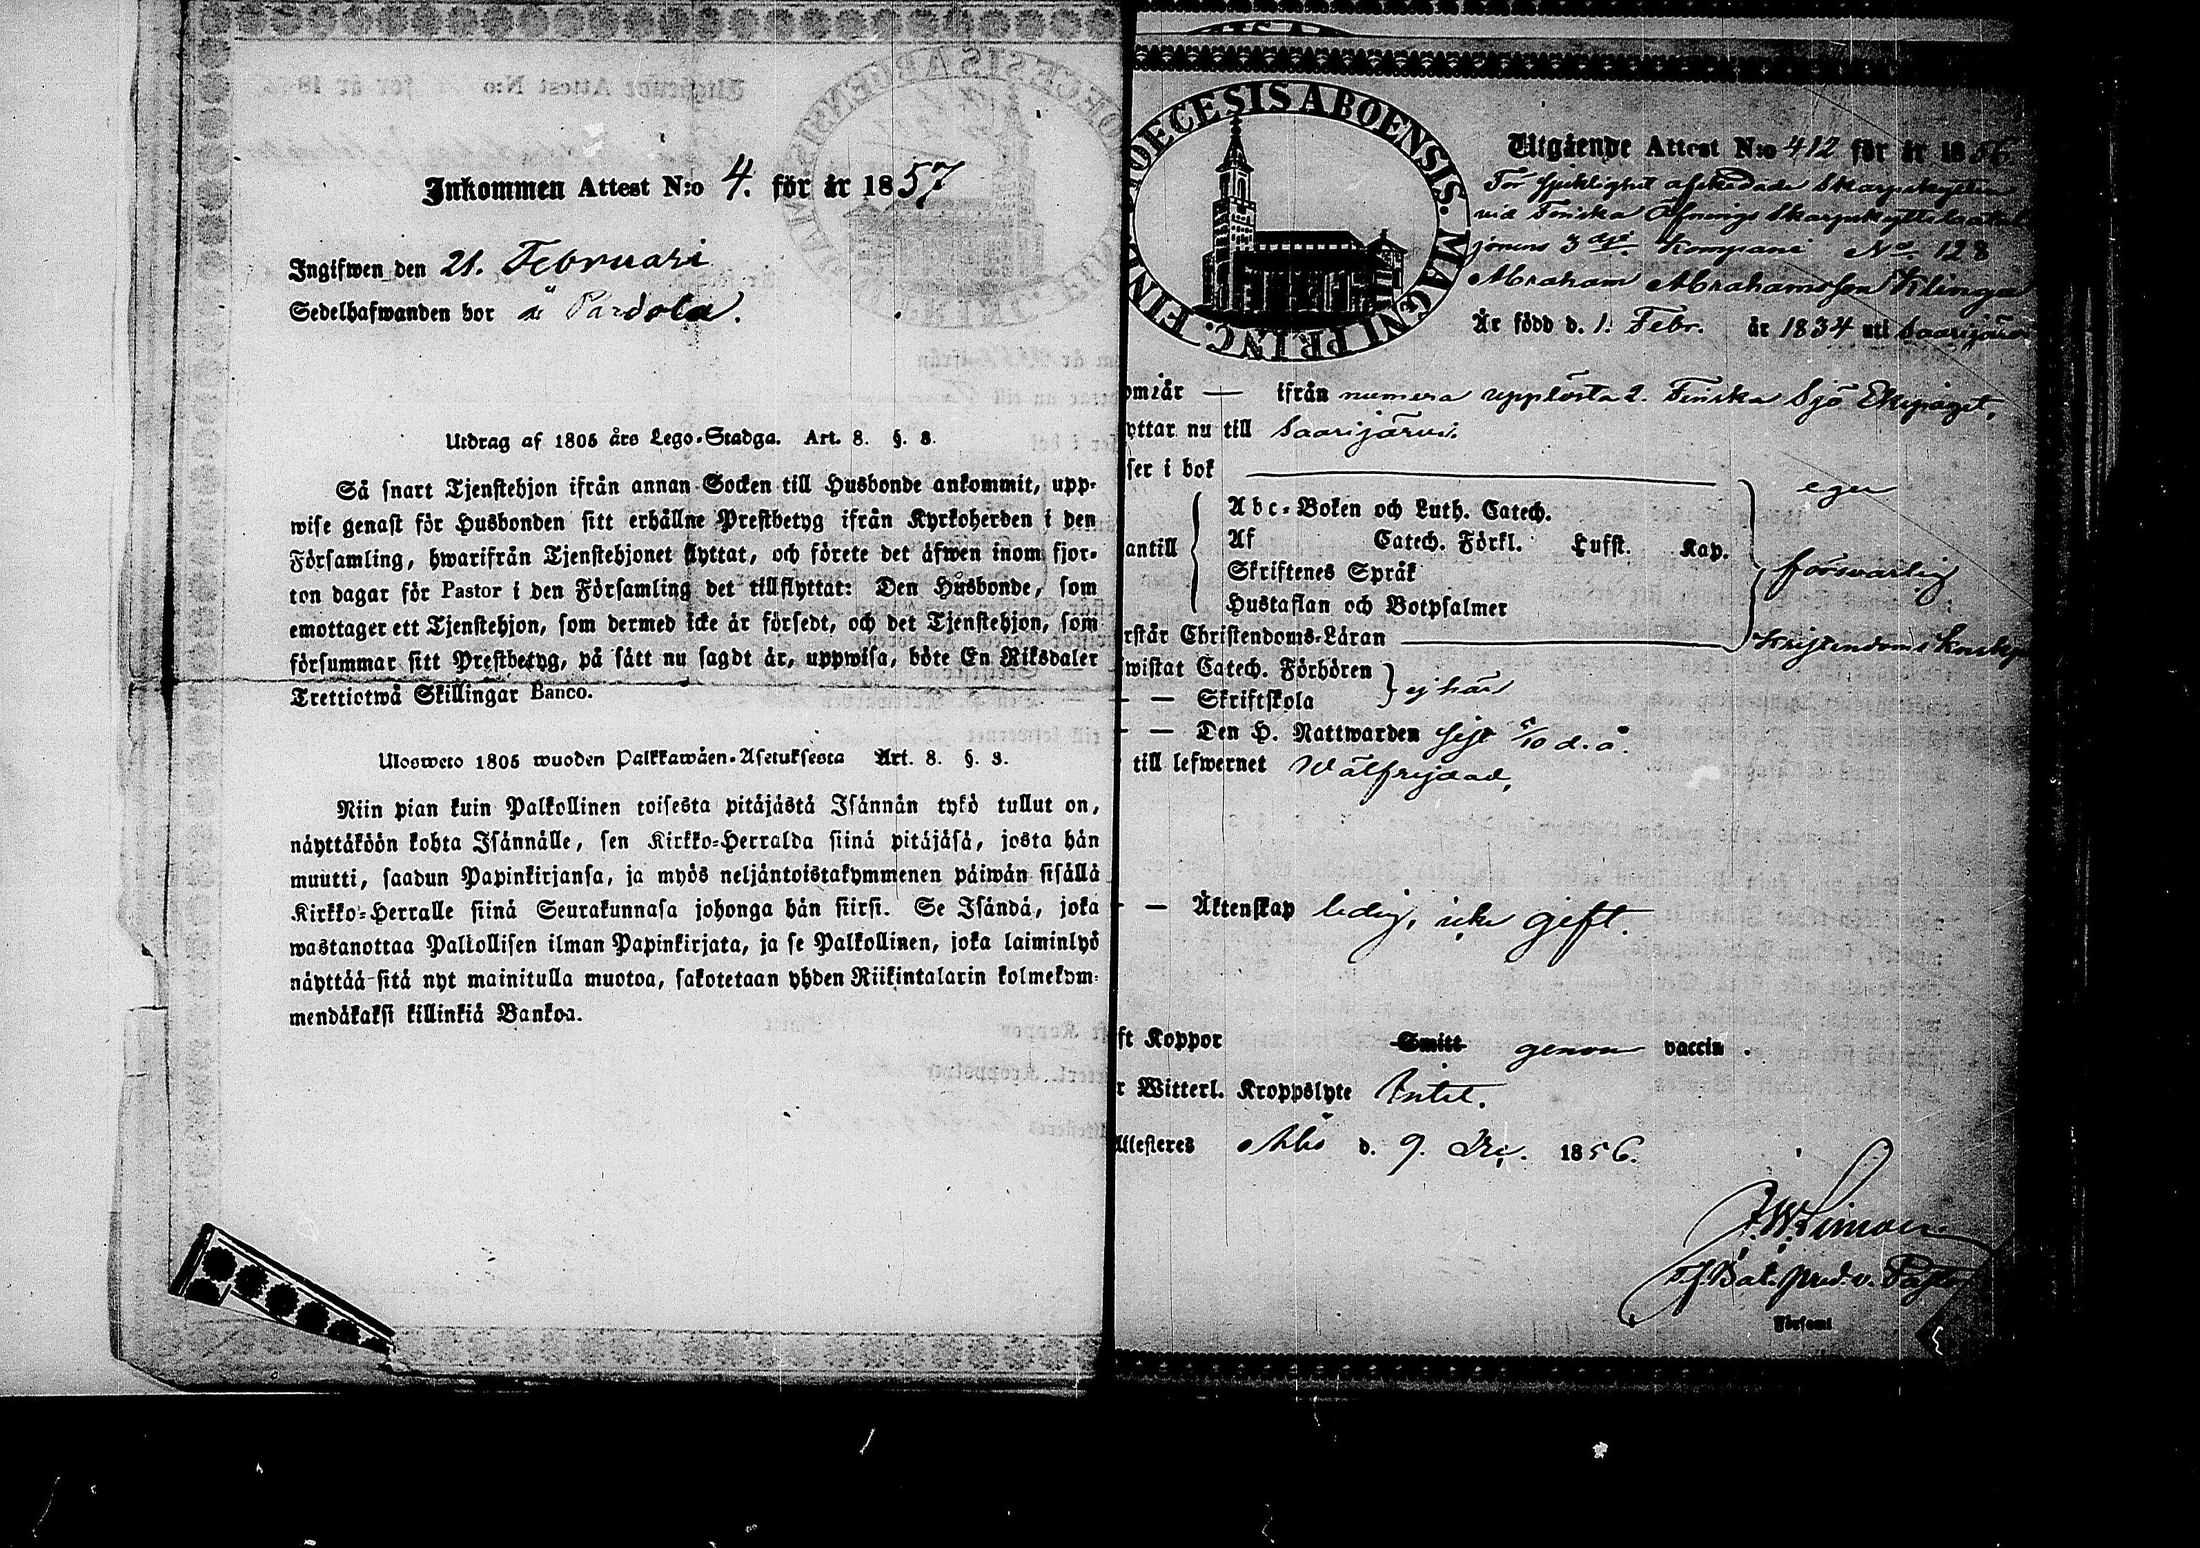 Inkommen Attest N:o 4. för år 1857
Ingifwen den 21. Februari
Sedelhafwanden bor å Pardola.
Utdrag af 1805 års Lego-Stadga. Art. 8. §. 8.
Så snart Tjenstehjon ifrån annan Socken till Husbonde ankommit, upp-
wise genast för Husbonden sitt erhållne Prestbetyg ifrån Kyrkoherden i den
Församling, hwarifrån Tjenstehjonet flyttat, och förete det äfwen inom fjor-
ton dagar för Pastor i den Församling det tillflyttat: Den Husbonde, som
emottager ett Tjenstehjon, som dermed icke är försedt, och det Tjenstehjon, som
försummar sitt Prestbetyg, på sätt nu sagdt är, uppwisa, böte En Riksdaler
Trettiotwå Skillingar Banco.
Ulosweto 1805 wuoden Palkkawäen-Asetuksesta Art. 8. §. 8.
Niin pian kuin Palkollinen toisesta pitäjästä Isännän tykö tullut on,
näyttäköön kohta Isännälle, sen Kirkko-Herralda siinä pitäjäsä, josta hän
muutti, saadun Papinkirjansa, ja myös neljäntoistakymmenen päiwän sisällä
Kirkko-Herralle siinä Seurakunnasa johonga hän siirsi. Se Isändä, joka
wastanottaa Palkollisen ilman Papinkirjata, ja se Palkollinen, joka laiminlyö
näyttää sitä nyt mainitulla muotoa, sakotetaan yhden Riikintalarin kolmekym-
mendäkaksi killinkiä Bankoa.
DIOECESIS ABOENSIS. MAGNI PRINC. FINL.
Utgående Attest N:o 412 för år 1856
För sjuklighet afskedade Skarpskytten
vid Finska Öfnings Skarpskyttebatal
jonens 3dje Kompani No. 128
Abraham Abrahamsson Klinga
Är född d. 1. Febr. år 1834 uti Saarijärvi
omiår — ifrån numera upplösta 2. Finska Sjö Ekipaget,
yttar nu till Saarijärvi.
ser i bok
eger
antill
Abc-Boken och Luth. Catech.
Af Catech. Förkl. Lufft. Kap.
Skriftenes Språk
Hustaflan och Botpsalmer
försvarlig
rstår Christendoms-Läran Kristendoms kunskap
wistat Catech. Förhören
— — Skriftskola
ej här
— — Den H. Nattwarden sist 5/10 d. å.
till lefwernet Wälfrejdad,
— — Äktenskap ledig, icke gift.
ft Koppor Smitt genom vaccin.
r Witterl. Kroppslyte Intet.
Attesteres Åbo d. 9. Dec. 1856.
Församl